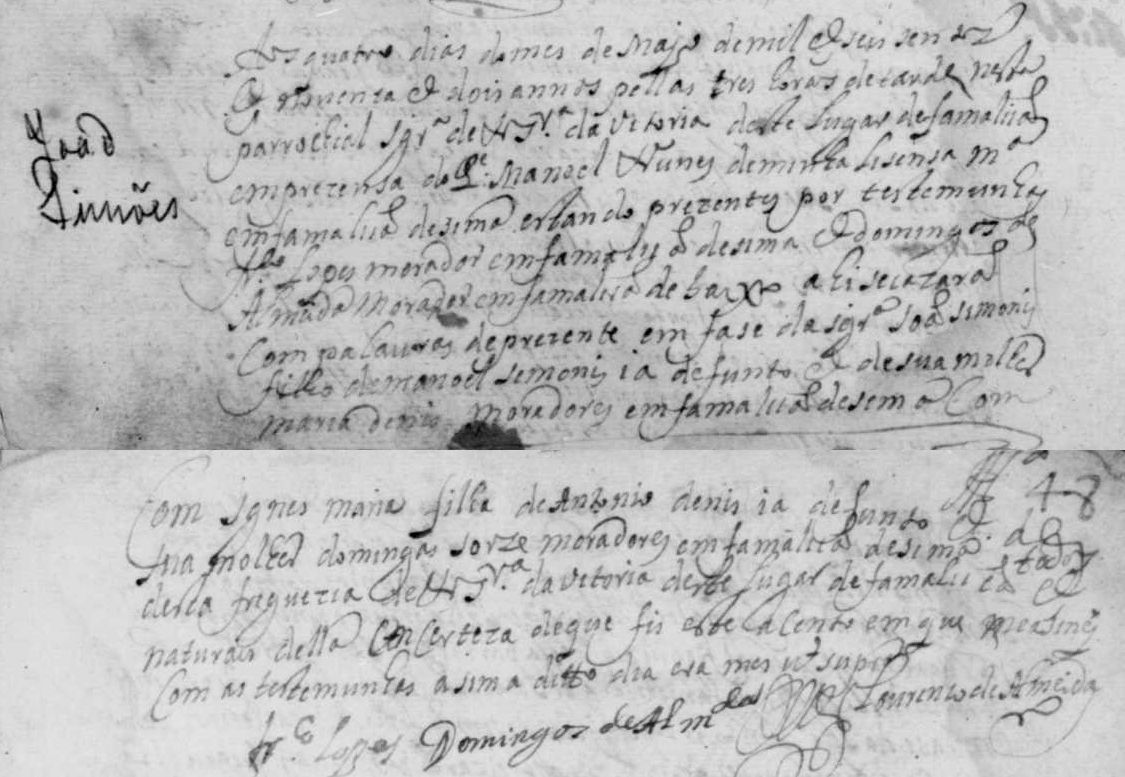 João
Simões
Aos quatro dias do mes de Majo de mil & seis sentos
& novenza & dois annos pellas tres horas de tarde nesta
parrochial Igrª de N Srª da Vitoria deste Lugar de famalicã
em prezensa do Pe. Manoel Nunes de minha lisensa mor
em famalicã de sima estando prezentes por testemunhas
Lopes morador em famalicã de sima & domingos de
Almada Morador em famalicã de baxo ahi se cazarã
Com palavras de prezente em fase da igrª Joã simonis
filho de manoel simonis ia defunto & de sua molher
maria denis moradores em famalicã de sima Com
48
Com Ignes maria filha de Antonio denis ia defunto & de
sua molher domingas Jorze moradores em famalicã de sima todos
desta friguezia de N Srª da vitoria deste Lugar de famalicã &
naturais della Em Certeza de que fis este acento em que me asinei
Com as testemunhas asima ditto dia era mes ut supra
Lopes Domingos de Almdas Lourenco de Almeida